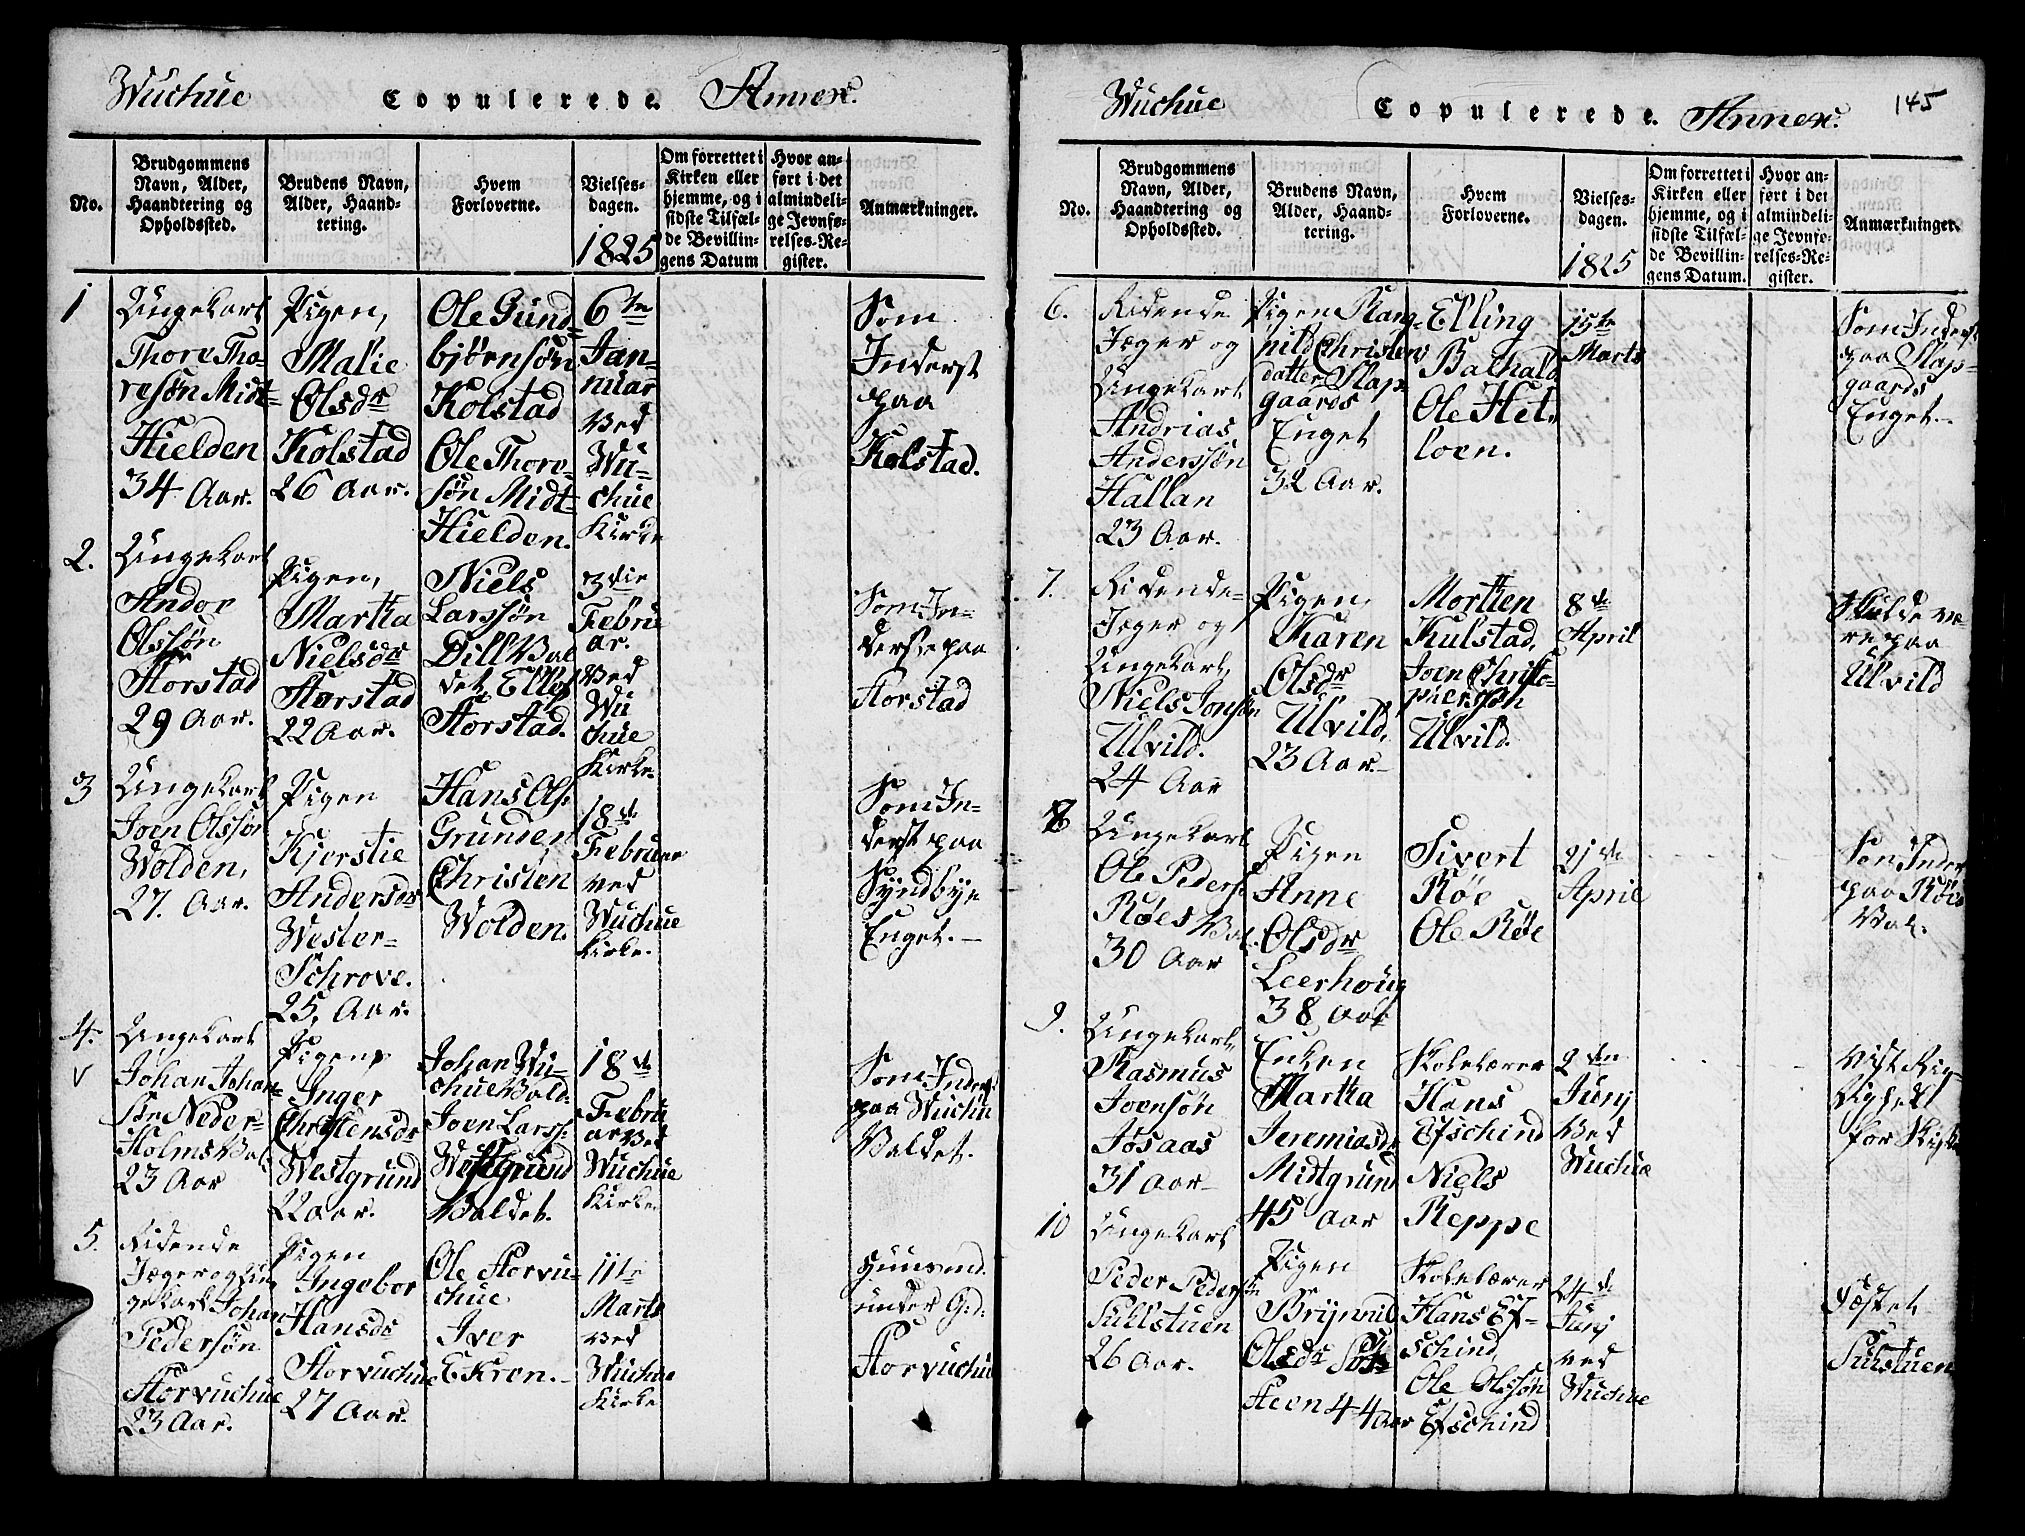 Wuchue Copulerede. Annex.
No.
Brudgommens
Navn, Alder,
Haandtering og
Opholdssted.
Brudens Navn,
Alder, Haand-
tering.
Hvem
Forloverne.
Vielses-
dagen.
1825
Om forrettet i
Kirken eller
hjemme, og i
sidste Tilfæl-
de Bevillin-
gens Datum
Hvor an-
ført i det
almindeli-
ge Jevnfø-
relses-Re-
gister.
Anmærkninger.
1
Ungekarl
Thore Tho-
resøn Midt-
Hielden
34 Aar.
Pigen,
Malie
Olsdr
Kolstad
26 Aar.
Ole Gund-
bjørnsøn
Kolstad
Ole Thore-
søn Midt-
Hielden.
6te
Jan-
nuar
ved
Wu-
chue
Kirke
Som
Inderst
paa
Kolstad.
2.
Ungekarl
Andor
Olssøn
Storstad
29 Aar.
Pigen,
Martha
Nielsdr
Storstad
22 Aar.
Niels
Larssøn
Dill Val
det, Ellef
Storstad.
3die
Febru
ar.
ved
Wu
chue
Kirke
Som In-
derste paa
Storstad
3
Ungekarl
Joen Olssøn
Wolden,
27. Aar.
Pigen
Kjerstie
Andersdr
Wester-
Schrove.
25, Aar.
Hans Ols:
Grunden
Christen
Wolden.
18de
Februar
ved
Wuchue
Kirke.
Som In-
derst paa
Syndbye
Enget.-
4.
Ungekarl
Johan Johan-
søn Neder-
Holms Val
23 Aar
Pigen
Inger
Christensdr
Westgrund
22 aar.
Johan Wu-
chue Vald.
Joen Larss:
Westgrund
Valdet.
18de
Febru
ar ved
Wuchue
Kirke
Som Inders
paa Wuchu
Valdet.
5.
Ridende
Jæger og Un
gekarl Johan
Pedersøn
Storvuchue
23 Aar.
Pigen
Ingebor
Hansdr
Storvuchue
27 Aar.
Ole Storvu-
chue
Iver
Ekren.-
11te
Marts
ved
Wuchue
Kirke
Huusmd.
under Grd:
Storvuchue
Wuchue Copulerede. Annex. 145
No.
Brudgommens
Navn, Alder,
Haandtering og
Opholdssted.
Brudens Navn,
Alder, Haand-
tering.
Hvem
Forloverne.
Vielses-
dagen.
1825
Om forrettet i
Kirken eller
hjemme, og i
sidste Tilfæl-
de Bevillin-
gens Datum.
Hvor an-
ført i det
almindeli-
ge Jevnfø-
relses-Re-
gister.
Anmærkninger.
6.
Ridende
Jæger og
Ungekarl
Andrias
Anderssøn
Hallan
23 Aar.
Pigen Rang-
nild Christens
datter Slap-
gaards
Enget
32 Aar.
Elling
Balhald
Ole Hel-
loen.
15te
Marts
Som Inderst
paa Slap-
gaards
Enget.-
7.
Ridende-
Jæger og
Ungekarl
Niels Jonsøn
Ulvild.
24 Aar
Pigen,
Karen
Olsdr
Ulvild,
23 Aar.-
Mortten
Kulstad,
Joen Christo-
phersøn
Ulvild.
8de
April
Skulde væ-
re paa
Ulvild
8
Ungekarl
Ole Peders:
Røes Val.
30 Aar
Pigen
Anne
Olsdr
Leerhoug
38 Aar
Sivert
Røe
Ole Røe
21de
April
Som Inder
paa Røes
Val.
9.
Ungekarl
Rasmus
Joensøn
Josaas
31 Aar-
Enken
Martha
Jeremiasdr
Midtgrund
45 Aar
Skolelærer
Hans
Efschind
Niels
Reppe
2den
Junj
ved
Wuchue
for Skifte
10
Ungekarl
Peder Peders
Sullstuen
26 Aar.
Pigen
Brijnild
Olsdr
44 Aar
Skolelærer
Hans Ef-
schind
Ole Olssøn
Efschind
24de
Junj
ved
Wuchue
Fæstet
Sulstuen